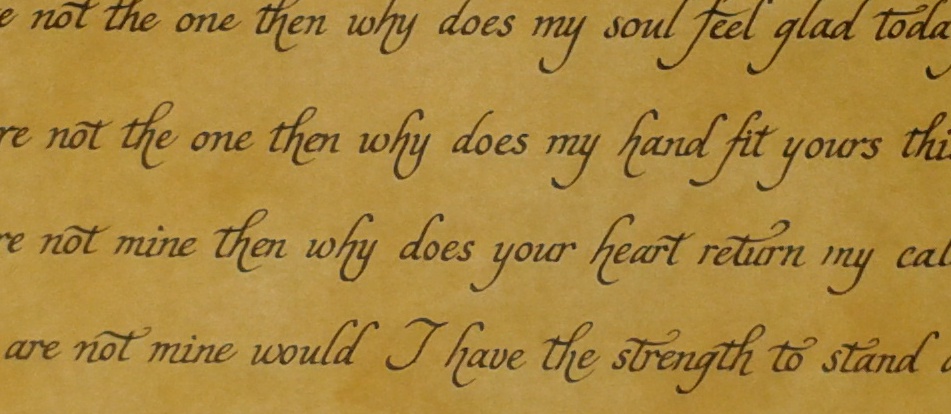 not the one then why does my soul feel glad
not the one then why does my hand fit yours
not mine then why does your heart return my
are not mine would I have the strength to stand